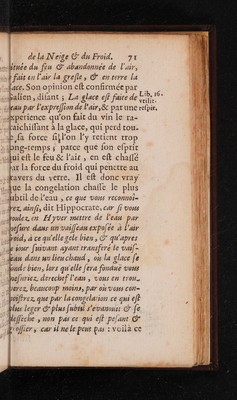 de la Neige & du Froid. 71
ituée du feu & abandonnée de l'air,
e fait en l'air la gresle, & en terre la
lace. Son opinion est confirmée par
Galien, disant; La glace est faite de
Lib. 16.
eau par l'expression de l'air, & par une
vtilit.
experience qu'on fait du vin le ra-
respir.
raichissant à la glace, qui perd tou-
te sa force si l'on l'y retient trop
long-temps; parce que son esprit
qui est le feu & l'air, en est chassé
par la force du froid qui penetre au
travers du verre. Il est donc vray
que la congelation chasse le plus
subtil de l'eau, ce que vous reconnoi-
trez, ainsi, dit Hippocrate, car si vous
voulez en Hyver mettre de l'eau par
mesure dans un vaisseau exposée à l'air
froid, à ce qu'elle gele bien, & qu'apres
le jour suivant ayant transferé le vais-
seau dans un lieu chaud, où la glace se
fonde bien, lors qu'elle sera fonduë vous
mesuriez derechef l'eau, vous en trou-
verez, beaucoup moins, par où vous con-
noistrez, que par la congelation ce qui est
plus leger & plus subtil s'evanouit & se
desseche, non pas ce qui est pesant &
grossier, car il ne le peut pas: voilà ce